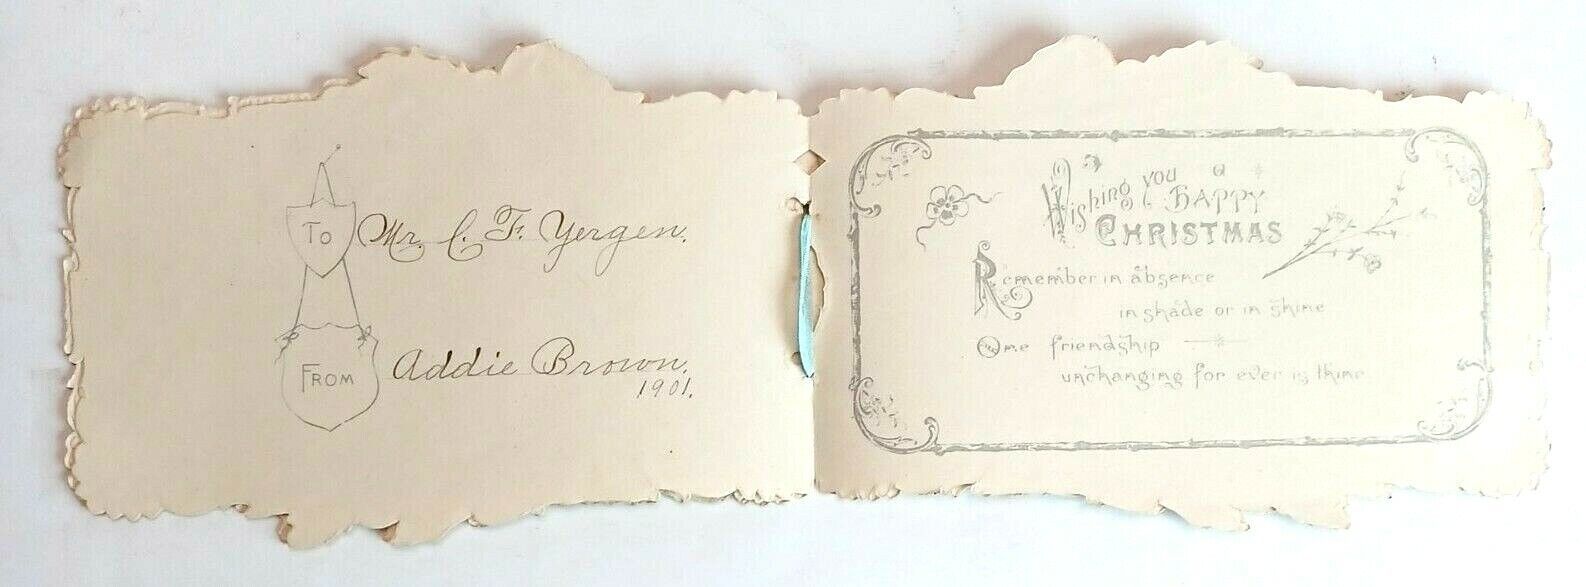 To Mr. C. F. Yergen.
From Addie Brown.
1901.
Wishing you
a Happy
Christmas
Remember in absence
in shade or in shine
One friendship
unchanging for ever is thine